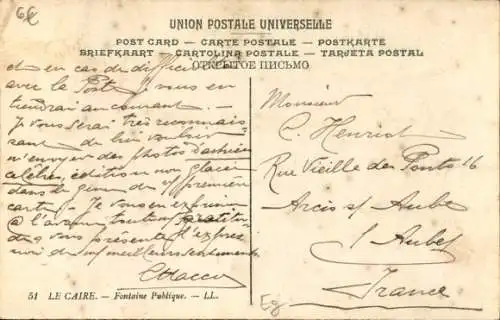 6€
UNION POSTALE UNIVERSELLE
POST CARD — CARTE POSTALE — POSTKARTE
BRIEFKAART — CARTOLINA POSTALE — TARJETA POSTAL
ОТКРЫТОЕ ПИСЬМО
et en cas de difficultés
avec la Poste, je vous en
tiendrai au courant. —
Je vous serai très reconnais
sant de bien vouloir
m'envoyer des photos
édition non glacée
dans le genre de première
carte. — Je vous en exprime
@ l'avance toute gratitu-
de, vous présente l'expres
sion de mes meilleurs sentiments
Monsieur
C. Henriot
Rue Vieille des Ponts 16
Arcis s/ Aube
(Aube)
France
51 LE CAIRE. — Fontaine Publique. — LL.
Eg